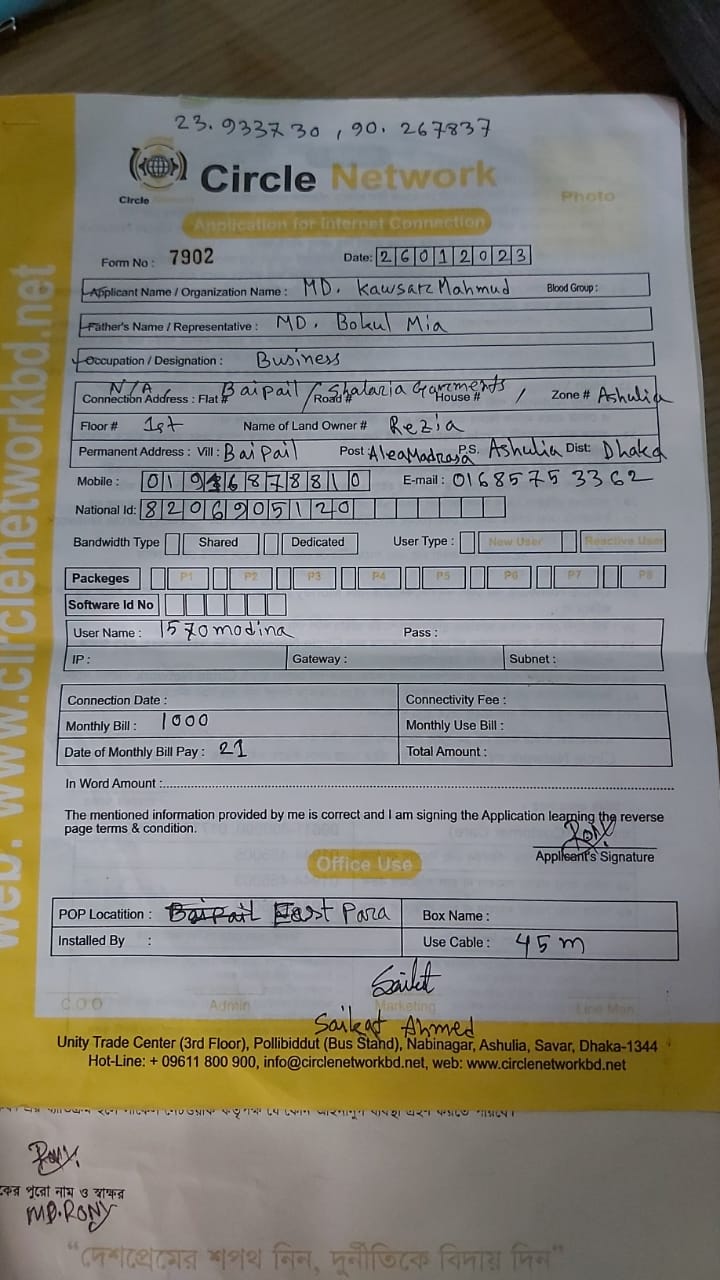 23.933730, 90.267837
Circle Network
Circle Network
Photo
Application for Internet Connection
Form No : 7902 Date: 26012023
Applicant Name / Organization Name : MD. Kawsar Mahmud Blood Group :
Father's Name / Representative : MD. Bokul Mia
Occupation / Designation : Business
Connection Address : Flat # N/A Baipail / Road # Shalaria Garments House # / Zone # Ashulia
Floor # 1st Name of Land Owner # Rezia
Permanent Address : Vill : Baipail Post : AleaMadrasa P.S. Ashulia Dist: Dhaka
Mobile : 019 6878810 E-mail : 01685753362
National Id: 8206905120
Bandwidth Type Shared Dedicated User Type : New User Reactive User
Packeges P1 P2 P3 P4 P5 P6 P7 P8
Software Id No
User Name : 1570modina Pass :
IP : Gateway : Subnet :
Connection Date : Connectivity Fee :
Monthly Bill : 1000 Monthly Use Bill :
Date of Monthly Bill Pay : 21 Total Amount :
In Word Amount :
The mentioned information provided by me is correct and I am signing the Application learning the reverse
page terms & condition.
Rony
Applicant's Signature
Office Use
POP Locatition : Baipail East Para Box Name :
Installed By : Use Cable : 45 m
Saikat
C.O.O Admin Marketing Line Man
Saikat Ahmed
Unity Trade Center (3rd Floor), Pollibiddut (Bus Stand), Nabinagar, Ashulia, Savar, Dhaka-1344
Hot-Line: + 09611 800 900, info@circlenetworkbd.net, web: www.circlenetworkbd.net
web: www.circlenetworkbd.net
Rony.
পুরো নাম ও স্বাক্ষর
MD.RONY
“দেশপ্রেমের শপথ নিন, দুর্নীতিকে বিদায় দিন”